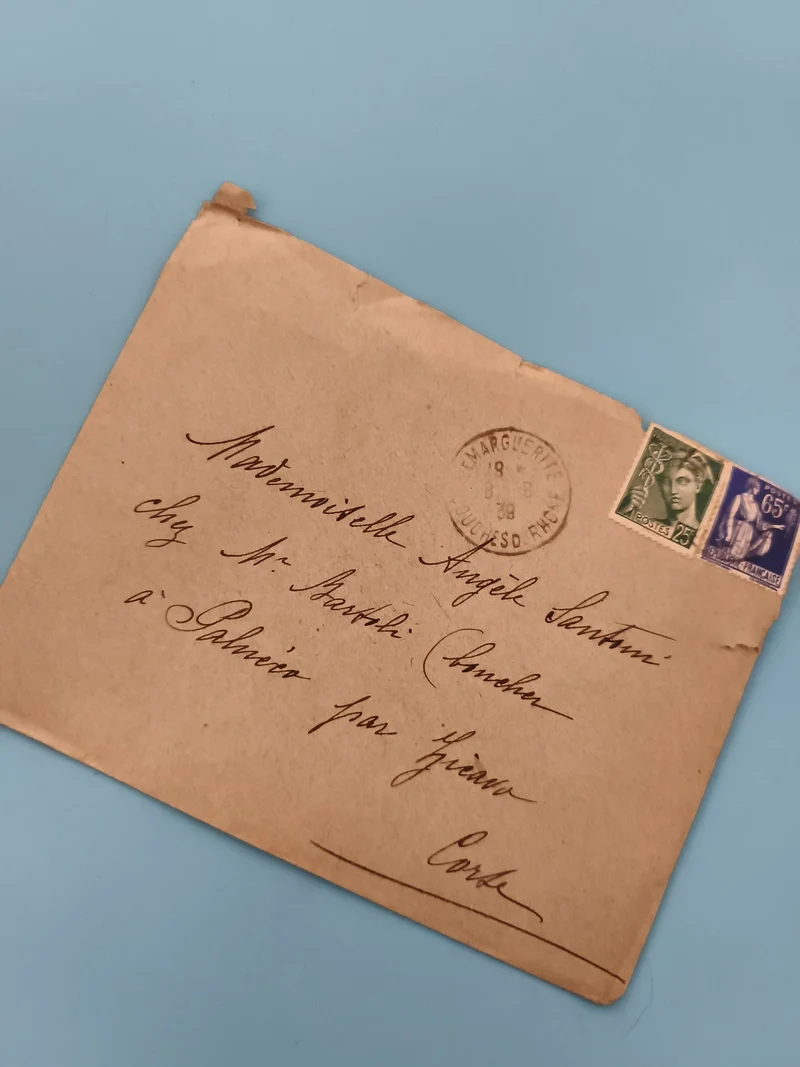 EMARGUERITE
19 *
8 8
39
BOUCHES D. RHONE
POSTES 25c
POSTES
65c
FRANÇAISE
Mademoiselle Angèle Santoni
chez Mr Bartoli (boucher
à Palnéca
par Zicavo
Corse